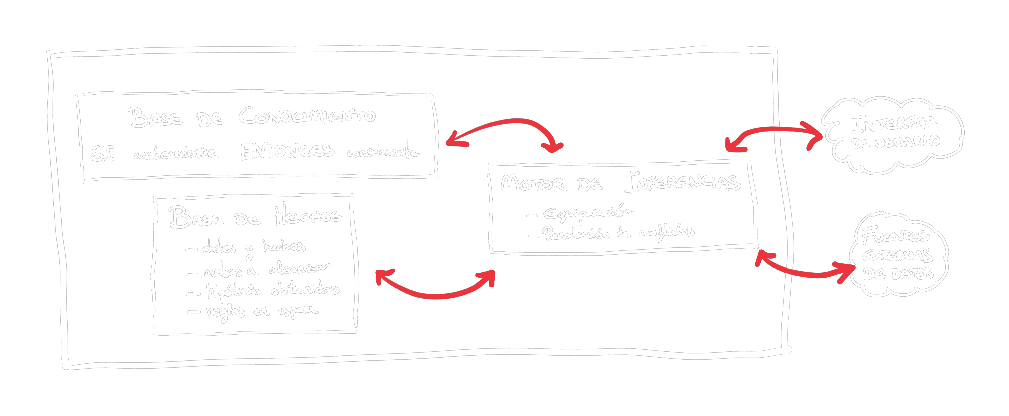 BASE DE CONOCIMIENTO
SI antecedente ENTONCES consecuente
BASE DE HECHOS
- datos y hechos
- metas a alcanzar
- hipótesis
- reglas en
MOTOR DE INFERENCIAS
- Equiparación
- Resolución de conflictos
INTERFAZ
DE USUARIO
FUENTES
EXTERNAS
DE DATOS